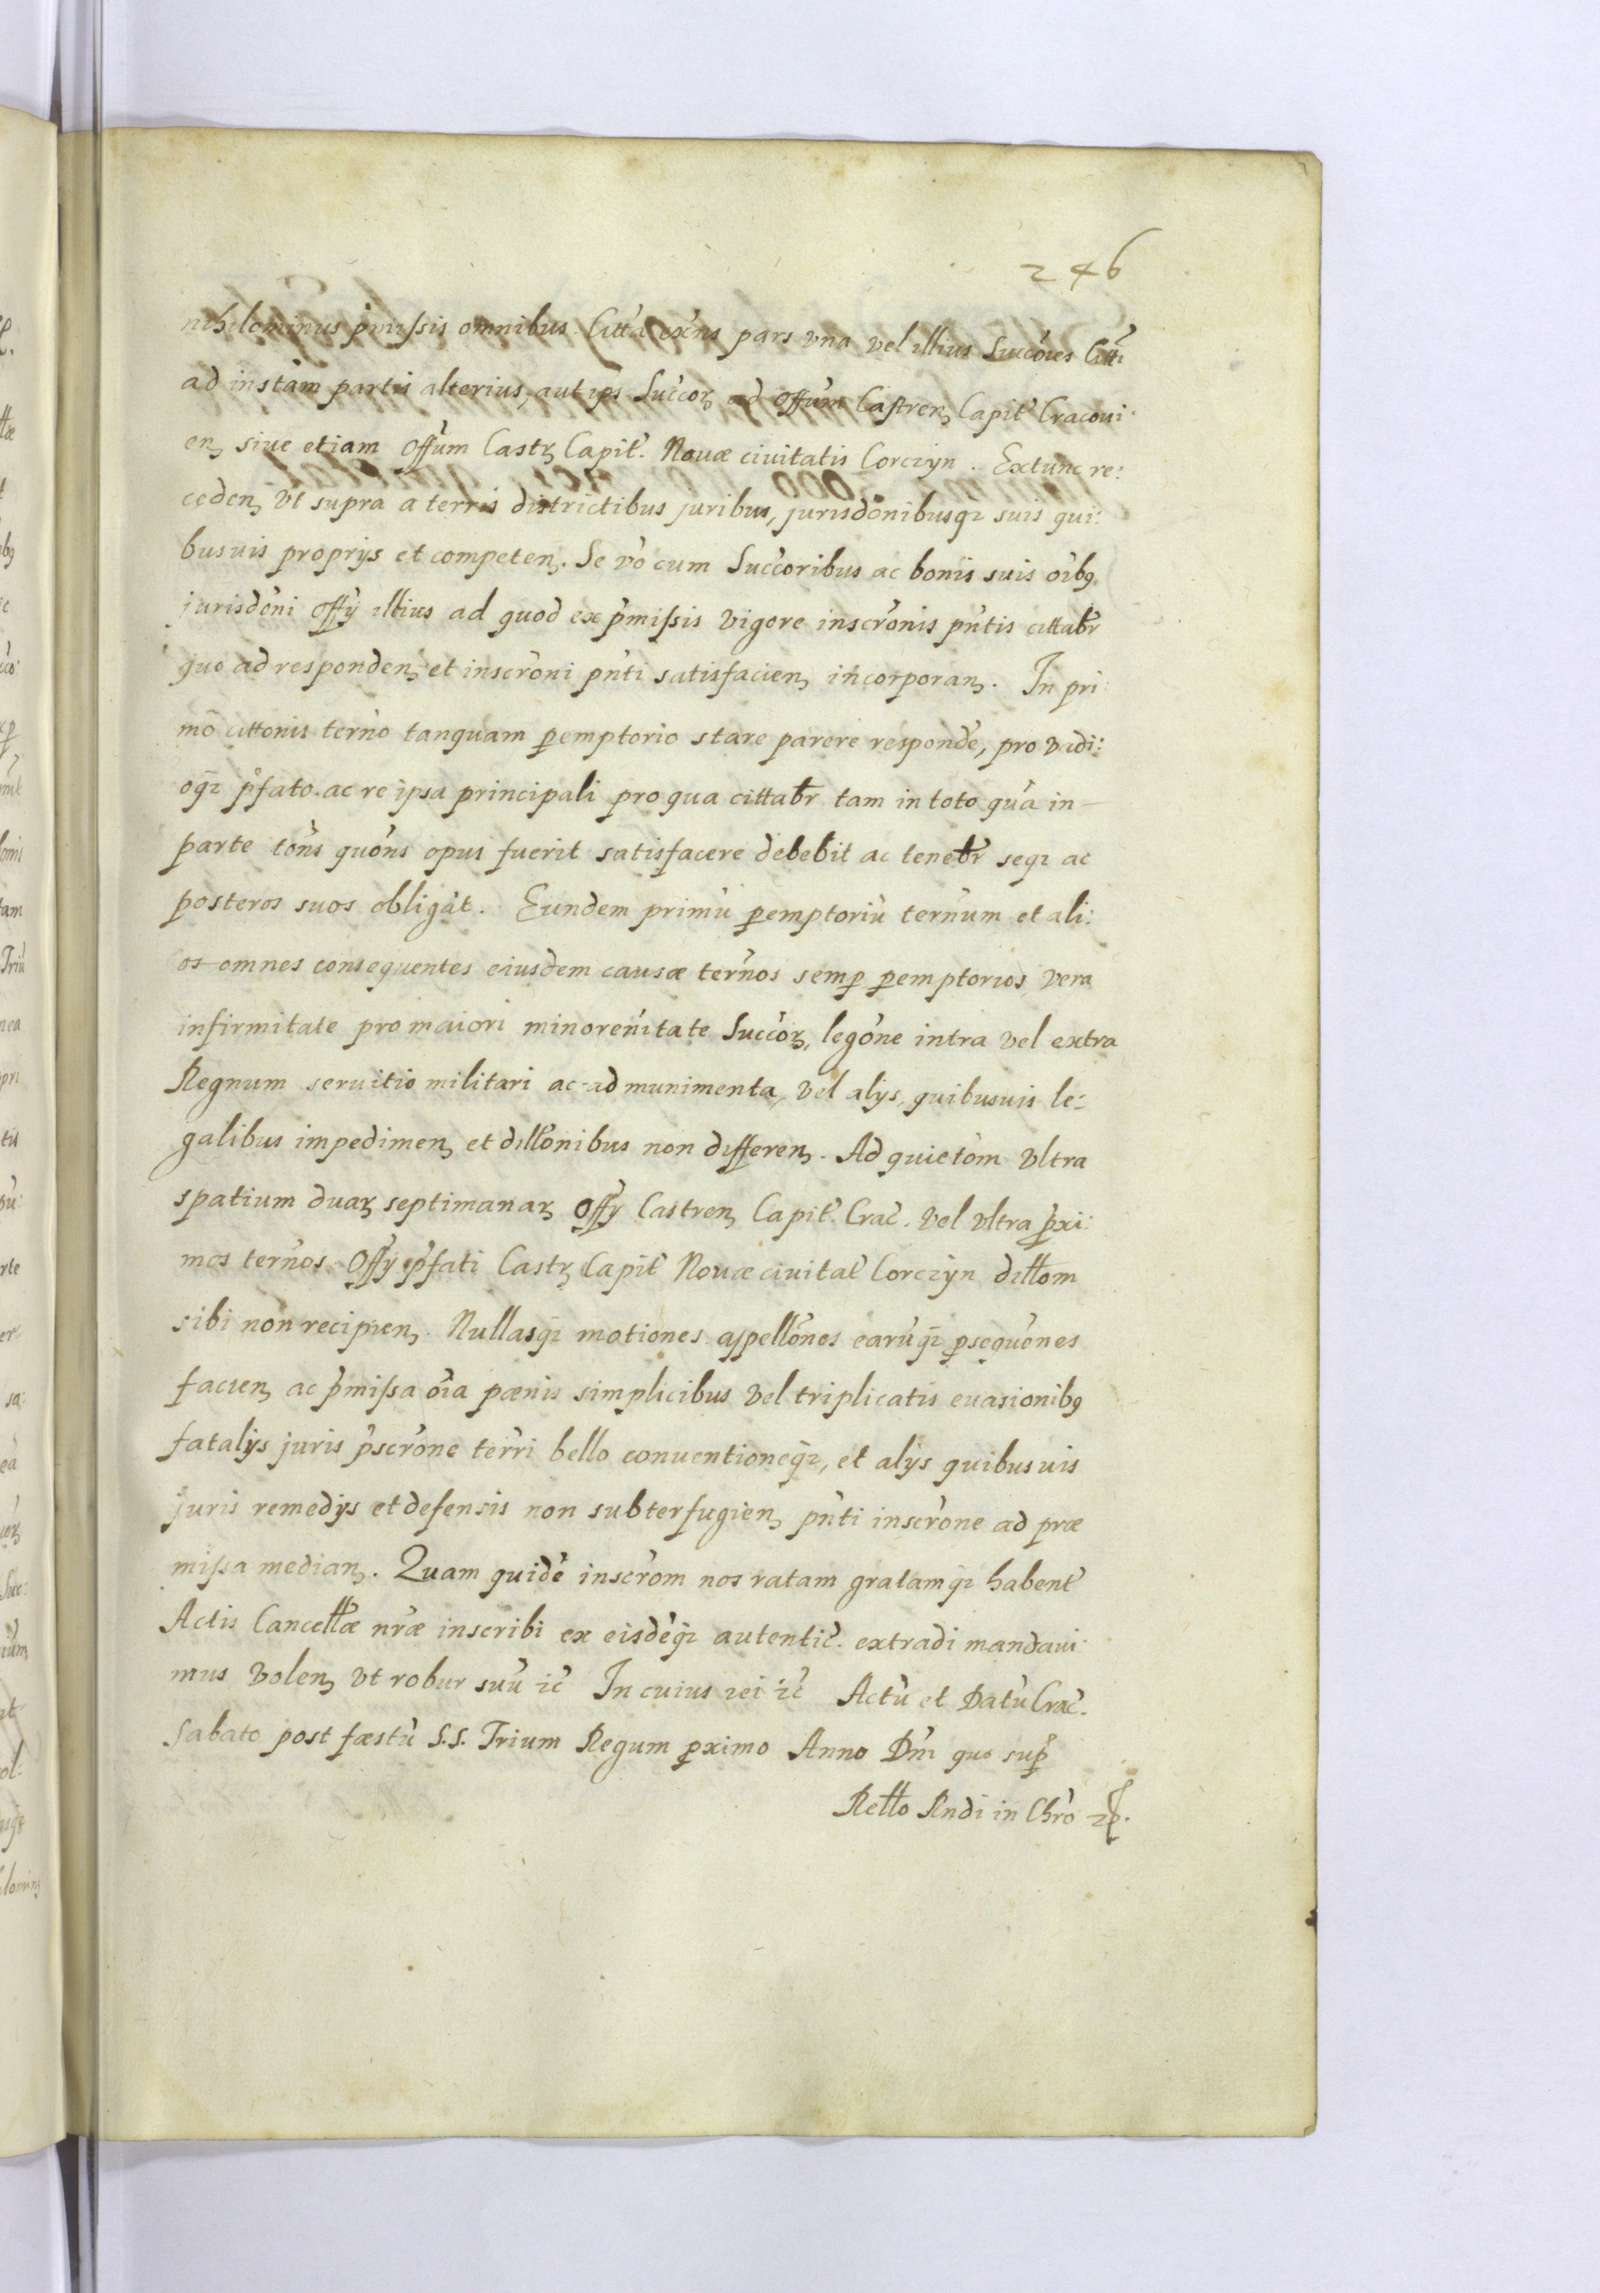 246
nihilominus p̃missis omnibus. Citta exñs pars vna vel illius Succōres Citti
ad instām partis alterius, aut ips Succorꝫ ad Offūm Castrenꝫ Capit̃ Cracoui:
enꝫ siue etiam Offūm Castrꝫ Capit̃. Nouæ ciuitatis Corczyn. Extunc re:
cedenꝫ vt supra a terris districtibus juribus, jurisdōnibusq̃ suis qui:
busuis proprijs et competenꝫ. Se vō cum Succoribus ac bonis suis oībꝯ
jurisdōni Offỹ illius ad quod ex p̃missis vigore inscrōnis pñtis cittabr̃
quo ad respondenꝫ et inscrōni pñti satisfacienꝫ incorporanꝫ. In pri:
mō cittonis terño tanquam ꝑemptorio stare parere respondē, pro vadi:
oq̃ p̃fato ac re ipsa principali pro qua cittabr̃ tam in toto quā in
parte tōns quōns opus fuerit satisfacere debebit ac tenebr̃ seq̃ ac
posteros suos obligāt. Eundem primū ꝑemptoriū terñum et ali:
os omnes consequentes eiusdem causæ terños semꝑ ꝑemptorios, vera
infirmitate pro maiori minoreñitate Succorꝫ, legōne intra vel extra
Regnum seruitio militari ac ad munimenta, vel alijs, quibusuis le:
galibus impedimenꝫ et dillōnibus non differenꝫ. Ad quietōm vltra
spatium duarꝫ septimanarꝫ Offỹ Castrenꝫ Capit̃. Crac̃. vel vltra ꝓxi:
mos terños Offỹ p̃fati Castrꝫ Capit̃ Nouæ ciuitat̃ Corczyn dillom
sibi non recipienꝫ. Nullasq̃ motiones appellōnes earūq̃ ꝓsequōnes
facienꝫ ac p̃missa oīa pænis simplicibus vel triplicatis euasionibꝯ
fatalijs juris p̃scrōne terri bello conuentioneq̃, et alijs quibusuis
juris remedijs et defensis non subterfugienꝫ pñti inscrōne ad præ
missa medianꝫ. Quam quidē inscrōm nos ratam gratamq̃ habent̃
Actis Cancellæ nr̃æ inscribi ex eisdēq̃ autentic̃. extradi mandaui:
mus volenꝫ vt robur suū ꝛc̃ In cuius rei ꝛc̃ Actū et Datū Crac̃.
Sabato post fæstū S.S. Trium Regum ꝓximo Anno Dñi quo supr̃
Rello Rndi in Chrō ꝛp.